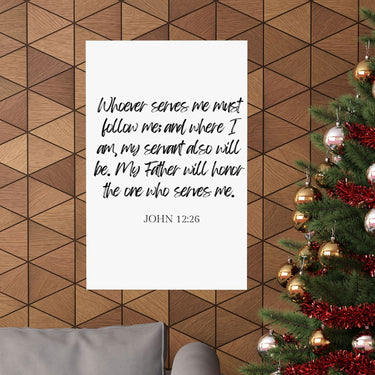 Whoever serves me must
follow me; and where I
am, my servant also will
be. My Father will honor
the one who serves me.
JOHN 12:26